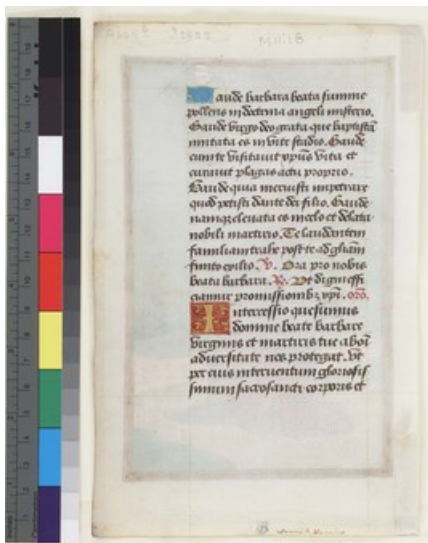 Gaude barbara beata summe
pollens in doctrina angeli misterio.
Gaude virgo deo grata que baptistã
imitata es in vite stadio. Gaude
cum te visitavit xpus vita et
curavit plagas actu proprio.
Gaude quia meruisti impetrare
quod petisti dante dei filio. Gaude
namque elevata es in celo et delata
nobili martirio. Te laudantem
familiam trahe post te ad gliam
finito exilio. V. Ora pro nobis
beata barbara. R. Ut digni effi
ciamur promissionibz xpi. orõ.
Intercessio quesumus
domine beate barbare
virginis et martiris tue ab oĩ
adversitate nos protegat. Ut
per eius interventum gloriosis
simum sacrosancti corporis et